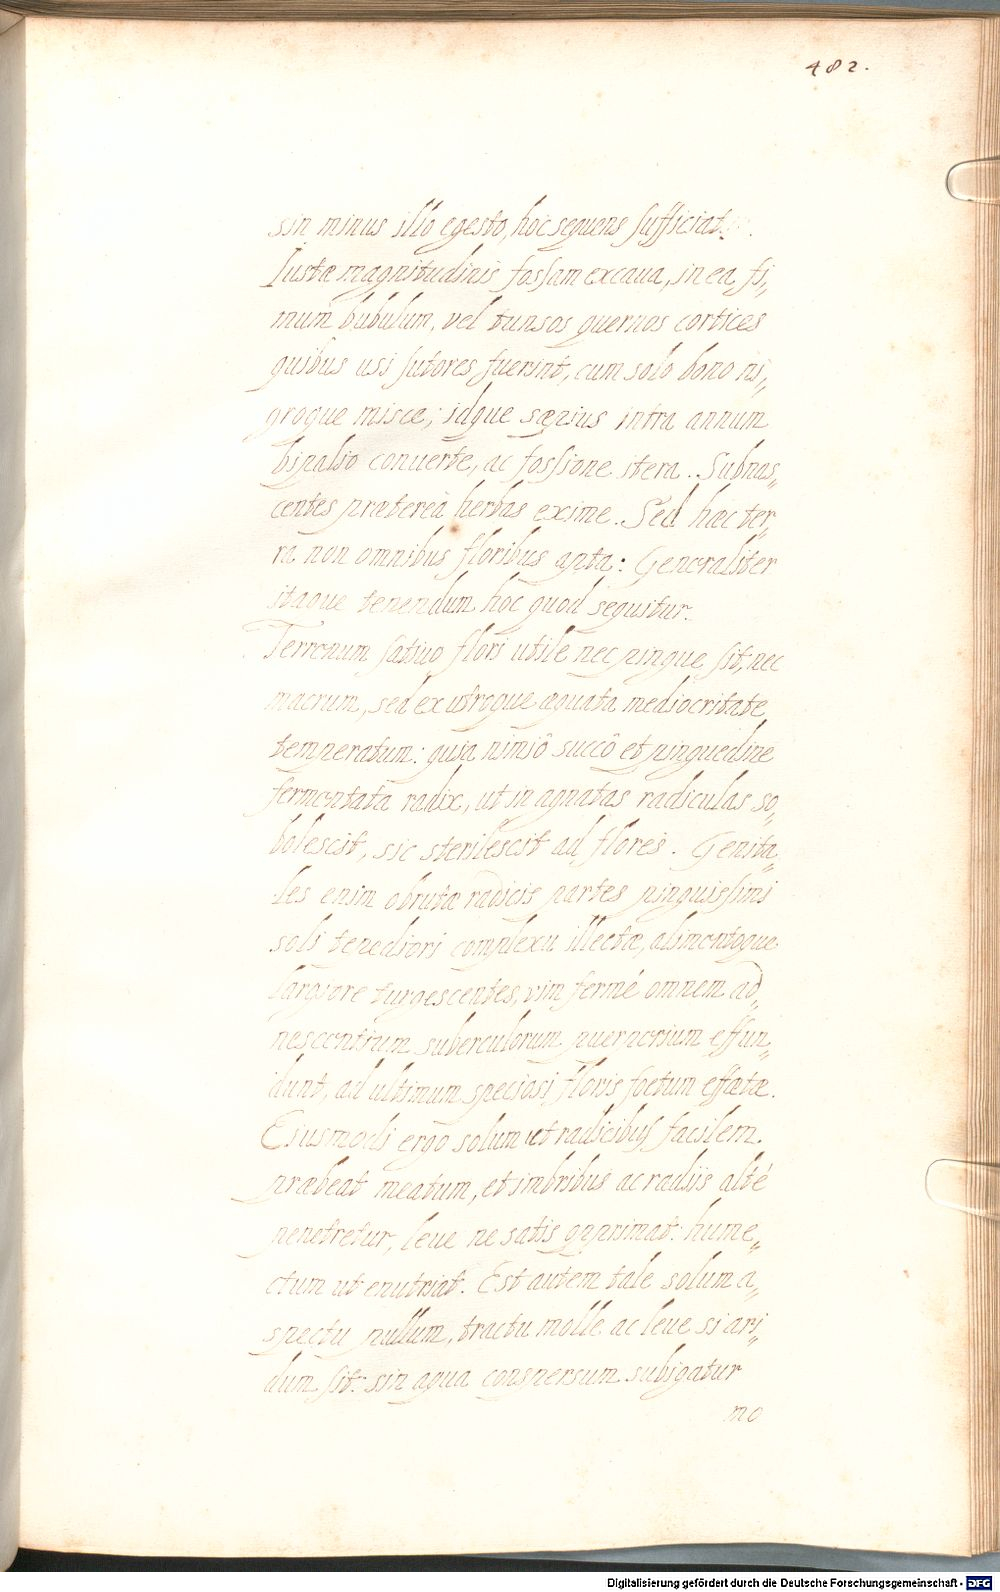 482.
sin minus illo egesto, hoc sequens sufficiat.
Iustæ magnitudinis fossam excaua, in ea fi„
mum bubulum, vel tunsos quernos cortices
quibus usi sutores fuerint, cum solo bono ni„
groque misce; idque sæpius intra annum
bipalio conuerte, ac fossione itera. Subnas„
centes præterea herbas exime. Sed hæc ter„
ra non omnibus floribus apta: Generaliter
itaque tenendum hoc quod sequitur.
Terrenum satiuo flori utile nec pingue sit, nec
macrum, sed ex utroque æquata mediocritate
temperatum: quia nimiô succô et pinguedine
fermentata radix, ut in agnatas radiculas so„
bolescit, sic sterilescit ad flores. Genita„
les enim obrutæ radicis partes pinguissimi
soli complexu illectæ, alimentoque
largiore turgescentes, vim fermé omnem ad„
nescentium suberculorum puerperium effun„
dunt, ad ultimum speciosi floris foetum effætæ.
Eiusmodi ergo solum ut radicibus facilem
præbeat meatum, et imbribus ac radiis alté
penetretur, leue ne satis opprimat: hume„
ctum ut enutriat. Est autem tale solum a„
spectu pullum, tractu molle ac leue si ari„
dum sit: sin aqua conspersum subigatur
mo
Digitalisierung gefördert durch die Deutsche Forschungsgemeinschaft - DFG